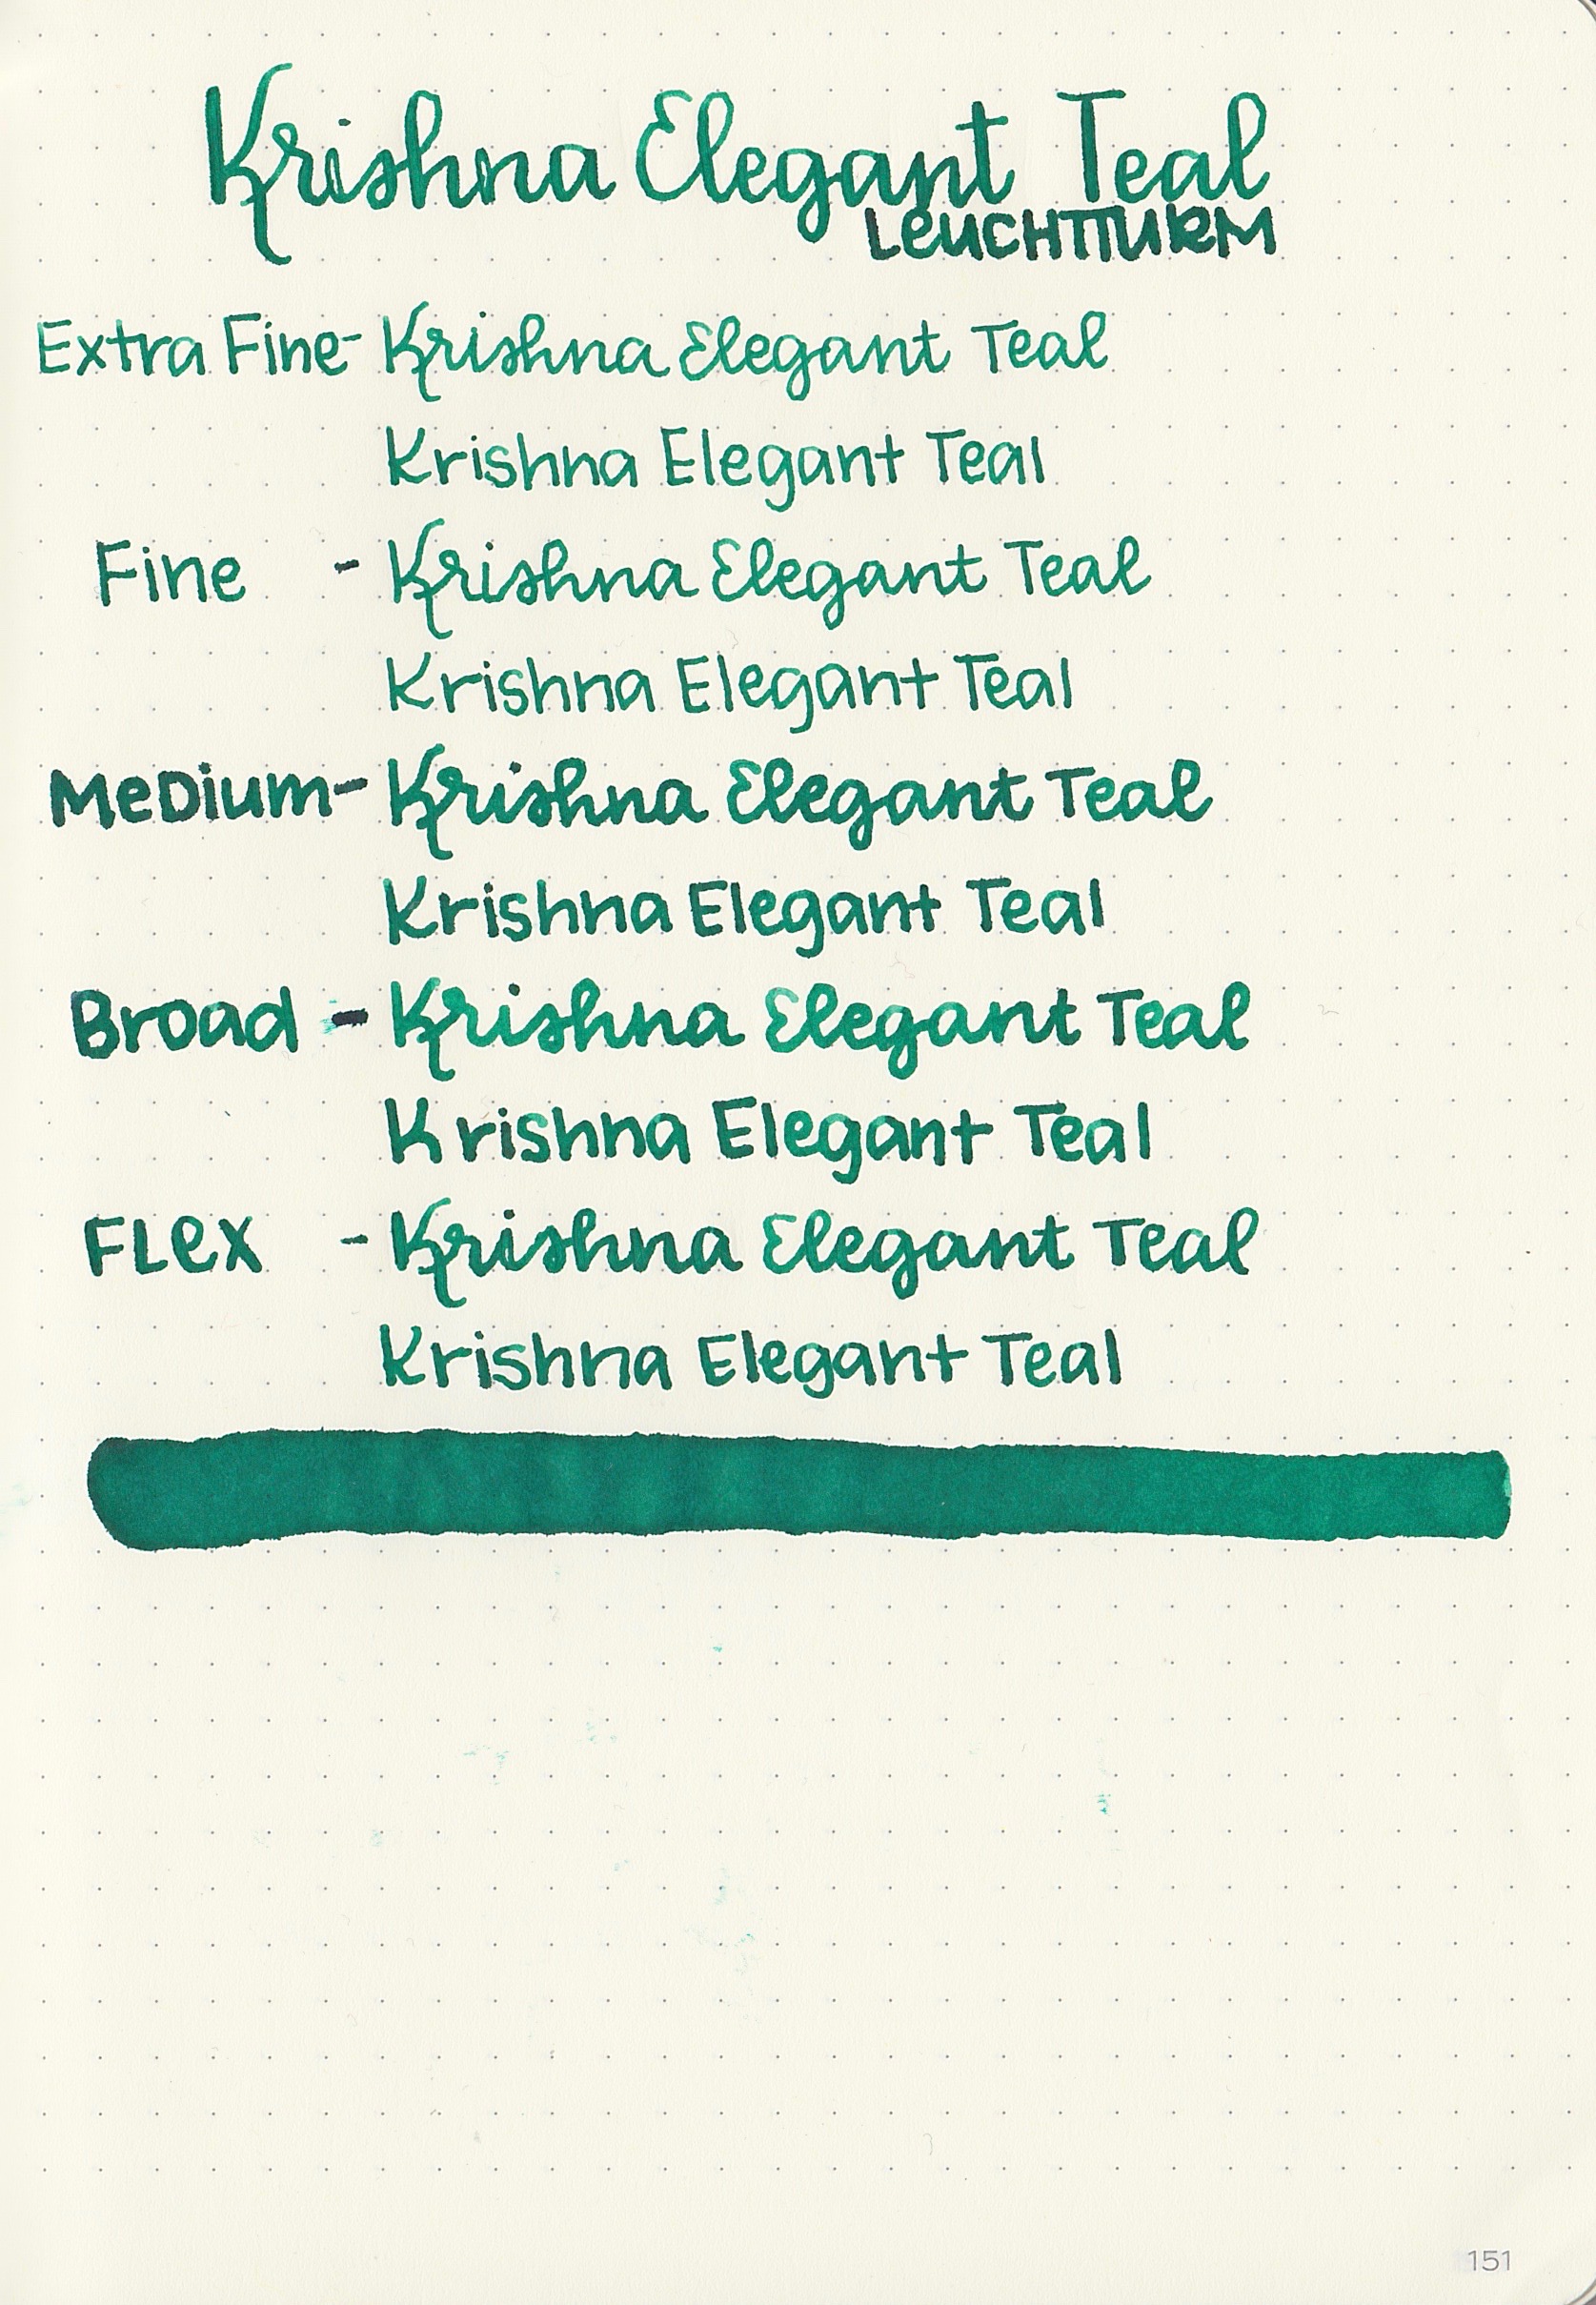 Krishna Elegant Teal
LeUCHTTURM
Extra Fine- Krishna Elegant Teal
Krishna Elegant Teal
Fine - Krishna Elegant Teal
Krishna Elegant Teal
MeDium- Krishna Elegant Teal
Krishna Elegant Teal
Broad - Krishna Elegant Teal
Krishna Elegant Teal
FLex - Krishna Elegant Teal
Krishna Elegant Teal
151